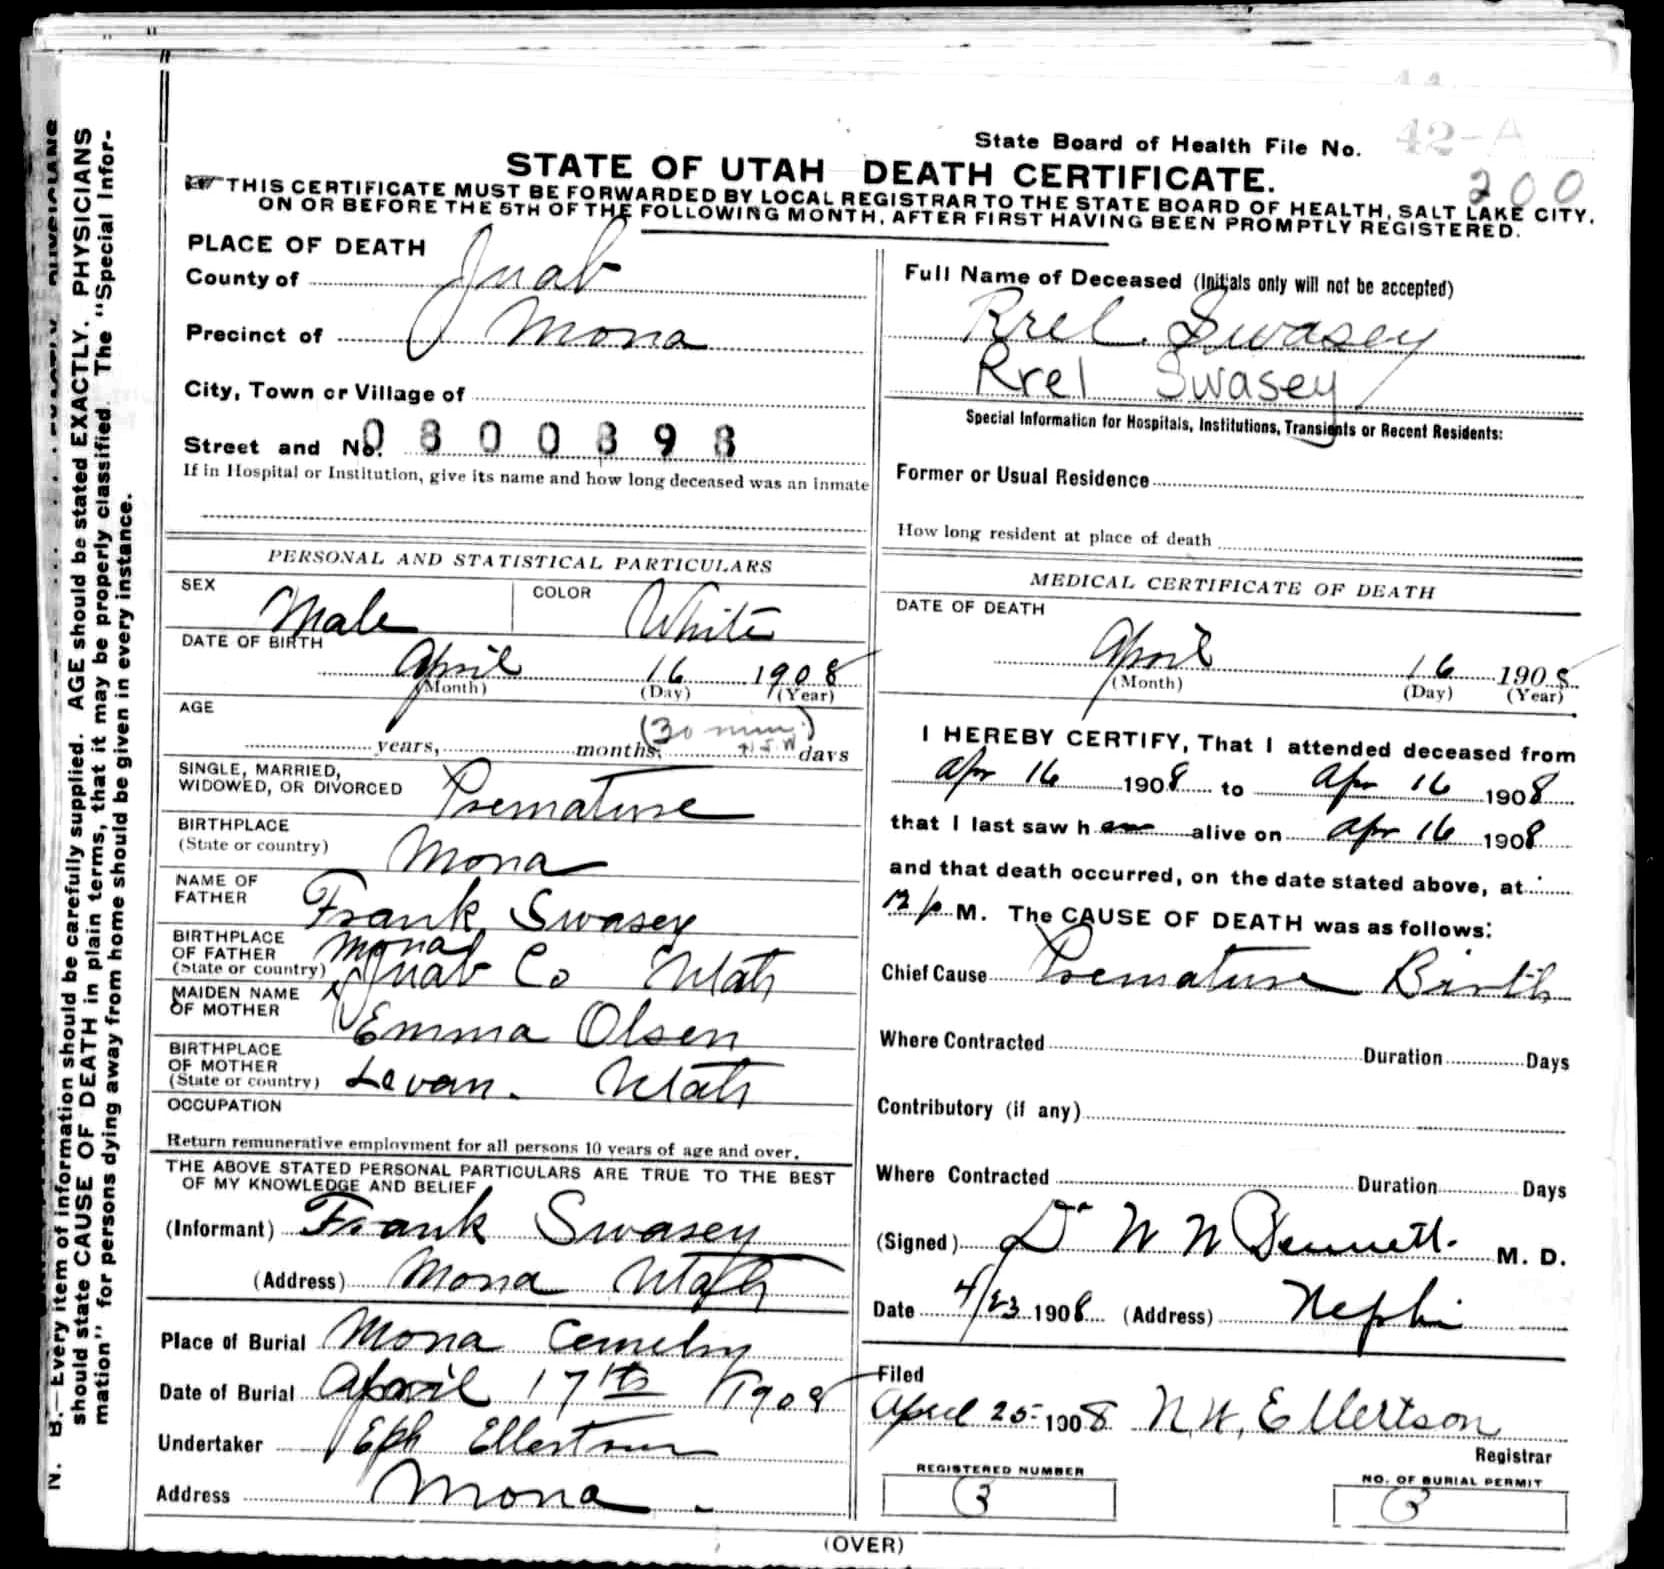 State Board of Health File No. 42-A
200
STATE OF UTAH DEATH CERTIFICATE.
THIS CERTIFICATE MUST BE FORWARDED BY LOCAL REGISTRAR TO THE STATE BOARD OF HEALTH, SALT LAKE CITY,
ON OR BEFORE THE 5TH OF THE FOLLOWING MONTH, AFTER FIRST HAVING BEEN PROMPTLY REGISTERED.
N. B.—Every item of information should be carefully supplied. AGE should be stated EXACTLY. PHYSICIANS
should state CAUSE OF DEATH in plain terms, that it may be properly classified. The "Special Infor-
mation" for persons dying away from home should be given in every instance.
PLACE OF DEATH
County of Juab
Precinct of Mona
City, Town or Village of
Street and No. 0800898
If in Hospital or Institution, give its name and how long deceased was an inmate
PERSONAL AND STATISTICAL PARTICULARS
SEX Male COLOR White
DATE OF BIRTH
April 16 1908
(Month) (Day) (Year)
AGE (30 min.)
years, months, days
SINGLE, MARRIED,
WIDOWED, OR DIVORCED Premature
BIRTHPLACE
(State or country) Mona
NAME OF
FATHER Frank Swasey
BIRTHPLACE
OF FATHER Mona
(State or country) Juab Co Utah
MAIDEN NAME
OF MOTHER Emma Olsen
BIRTHPLACE
OF MOTHER
(State or country) Levan. Utah
OCCUPATION
Return remunerative employment for all persons 10 years of age and over.
THE ABOVE STATED PERSONAL PARTICULARS ARE TRUE TO THE BEST
OF MY KNOWLEDGE AND BELIEF
(Informant) Frank Swasey
(Address) Mona Utah
Place of Burial Mona Cemetry
Date of Burial April 17th 1908
Undertaker Eph Ellertson
Address Mona.
Full Name of Deceased (Initials only will not be accepted)
Rrel Swasey
Rrel Swasey
Special Information for Hospitals, Institutions, Transients or Recent Residents:
Former or Usual Residence
How long resident at place of death
MEDICAL CERTIFICATE OF DEATH
DATE OF DEATH
April 16 1908
(Month) (Day) (Year)
I HEREBY CERTIFY, That I attended deceased from
apr 16 1908 to apr 16 1908
that I last saw h alive on apr 16 1908
and that death occurred, on the date stated above, at
12 p M. The CAUSE OF DEATH was as follows:
Chief Cause Premature Birth
Where Contracted Duration Days
Contributory (if any)
Where Contracted Duration Days
(Signed) Dr W W Bennett. M. D.
Date 4/23 1908 (Address) Nephi
Filed
April 25- 1908 N. W. Ellertson
Registrar
REGISTERED NUMBER
3
NO. OF BURIAL PERMIT
3
(OVER)